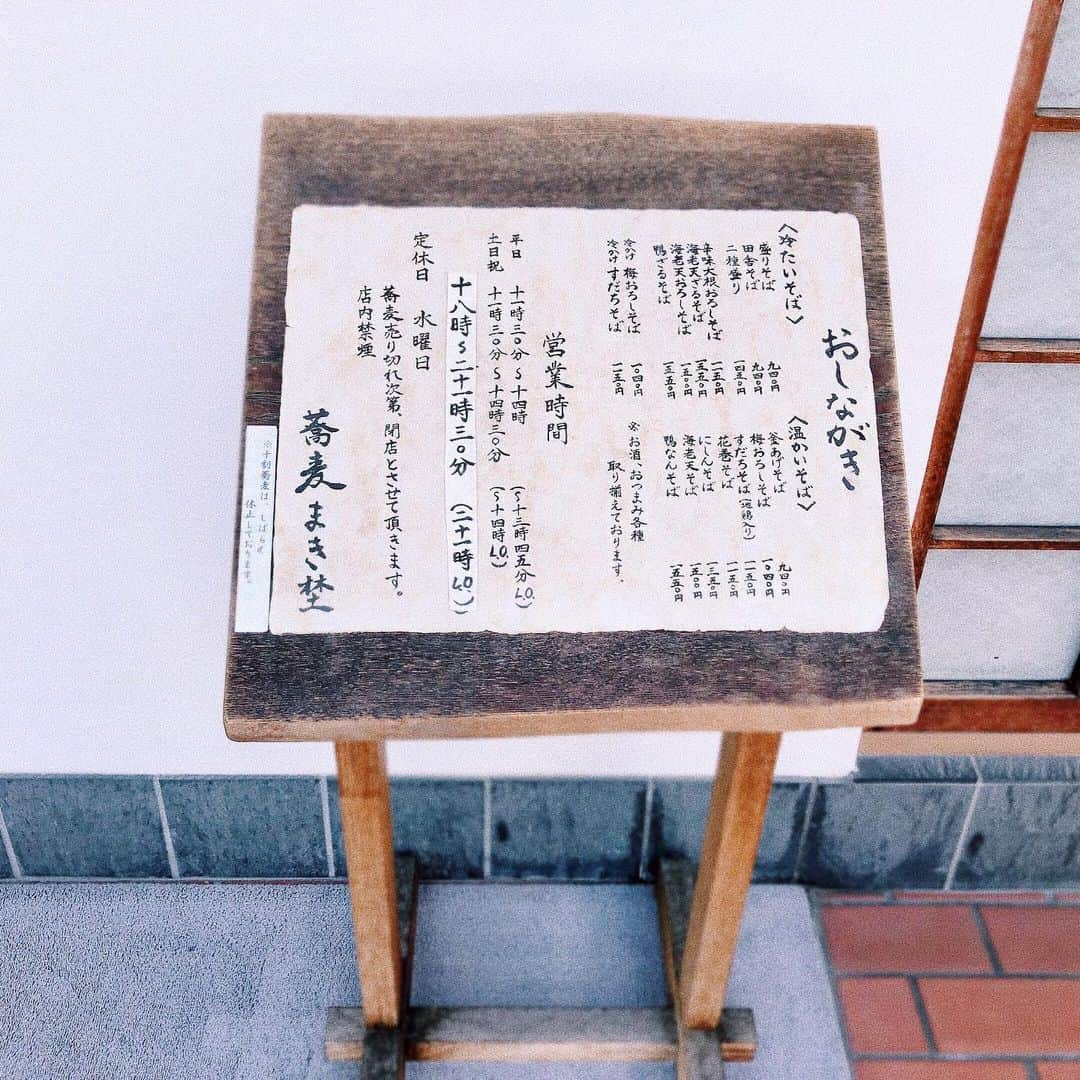 おしながき
〈冷たいそば〉
盛りそば 九四〇円
田舎そば 九四〇円
二種盛り
辛味大根おろしそば 一一五〇円
海老天ざるそば 一五五〇円
海老天おろしそば
鴨ざるそば
冷かけ 梅おろしそば 一〇四〇円
冷かけ すだちそば 一一五〇円
〈温かいそば〉
釜あげそば 九四〇円
梅おろしそば 一〇四〇円
すだちそば 一一五〇円
花巻そば 一一五〇円
にしんそば 一三五〇円
海老天そば 一五〇〇円
鴨なんそば 一五五〇円
※お酒、おつまみ各種
取り揃えております。
営業時間
平日 十一時三〇分〜十四時 (〜十三時四五分L.O.)
土日祝 十一時三〇分〜十四時三〇分 (〜十四時L.O.)
十八時〜二十一時三〇分 (二十一時L.O.)
定休日 水曜日
蕎麦売り切れ次第、閉店とさせて頂きます。
店内禁煙
蕎麦まき埜
※十割蕎麦は、しばらく
休止しております。